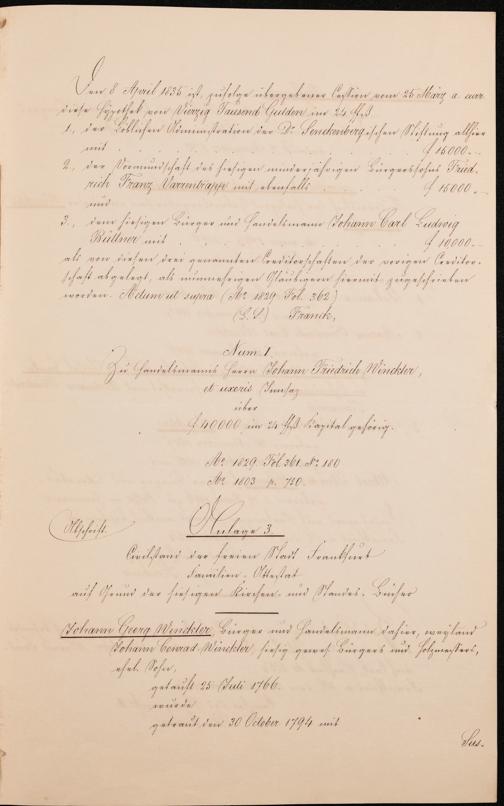 Den 8 April 1835 ist, zufolge übergebener Cession vom 25 März a. curr.
diese Hypothek von Vierzig Tausend Gulden im 24 ffuß
1., der Löblichen Administration der Dr. Senckenberg'ischen Stiftung allhier
mit . . . . . . . f 15000.–
2., der Vormundschaft des hiesigen minderjährigen Bürgerssohns Fried-
rich Franz Varrentrapp mit ebenfalls . . . f 15000.–
und
3., dem hiesigen Bürger und Handelsmann Johann Carl Ludwig
Büttner mit . . . . . . f 10000.–
als von diesen drei genannten Creditorschaften der vorigen Creditor-
schaft abgelegt, als nunmehrigen Gläubigern hiermit zugeschrieben
worden. Actum ut supra (Ao. 1829. Fol. 362)
(L.S.) Franck,
Num. 1.
Zu Handelsmanns Herrn Johann Friedrich Winckler,
et uxoris Insaz
über
f 40,000 im 24 ffuß Kapital gehörig.
Ao. 1829. Fol. 361. No. 180
Ao. 1803 p. 720.
Abschrift.
Anlage 3.
Civilstand der freien Stadt Frankfurt
Familien-Attestat
auf Grund der hiesigen Kirchen- und Standes-Bücher
Johann Georg Winckler, Bürger und Handelsmann dahier, weyland
Johann Conrad Winckler, hiesig gewes. Bürgers und Holzmessers,
ehel. Sohn,
getauft 25 Juli 1766.
wurde
getraut den 30 October 1794 mit
Sus-